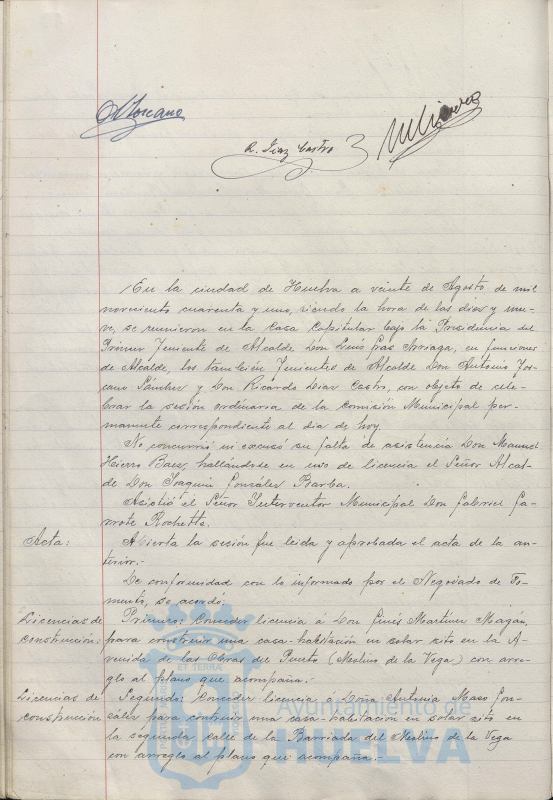 A. Toscano
R. Diaz Castro
En la ciudad de Huelva a veinte de Agosto de mil
novecientos cuarenta y uno, siendo la hora de las diez y nue-
ve, se reunieron en la Casa Capitular bajo la Presidencia del
Primer Teniente de Alcalde Don Luis Gras Arriaga, en funciones
de Alcalde, los también Tenientes de Alcalde Don Antonio Tos-
cano Sánchez y Don Ricardo Diaz Castro, con objeto de cele-
brar la sesión ordinaria de la Comisión Municipal per-
manente correspondiente al dia de hoy.
No concurrió ni excusó su falta de asistencia Don Manuel
Hierro Baez, hallándose en uso de licencia el Señor Alcal-
de Don Joaquin González Barba.
Asistió el Señor Interventor Municipal Don Gabriel Ga-
rrote Rochetta.
Acta: Abierta la sesión fue leida y aprobada el acta de la an-
terior.-
De conformidad con lo informado por el Negociado de Fo-
mento, se acordó:
Licencias de Primero: Conceder licencia á Don Ginés Martínez Magán,
construcción: para construir una casa-habitación en solar sito en la A-
venida de las Obras del Puerto (Molino de la Vega) con arre-
glo al plano que acompaña.-
Licencias de Segundo: Conceder licencia á Doña Antonia Maso Gon-
construcción zález para contruir una casa-habitación en solar sito en
la segunda calle de la Barriada del Molino de la Vega
con arreglo al plano que acompaña.-
Ayuntamiento de
HUELVA